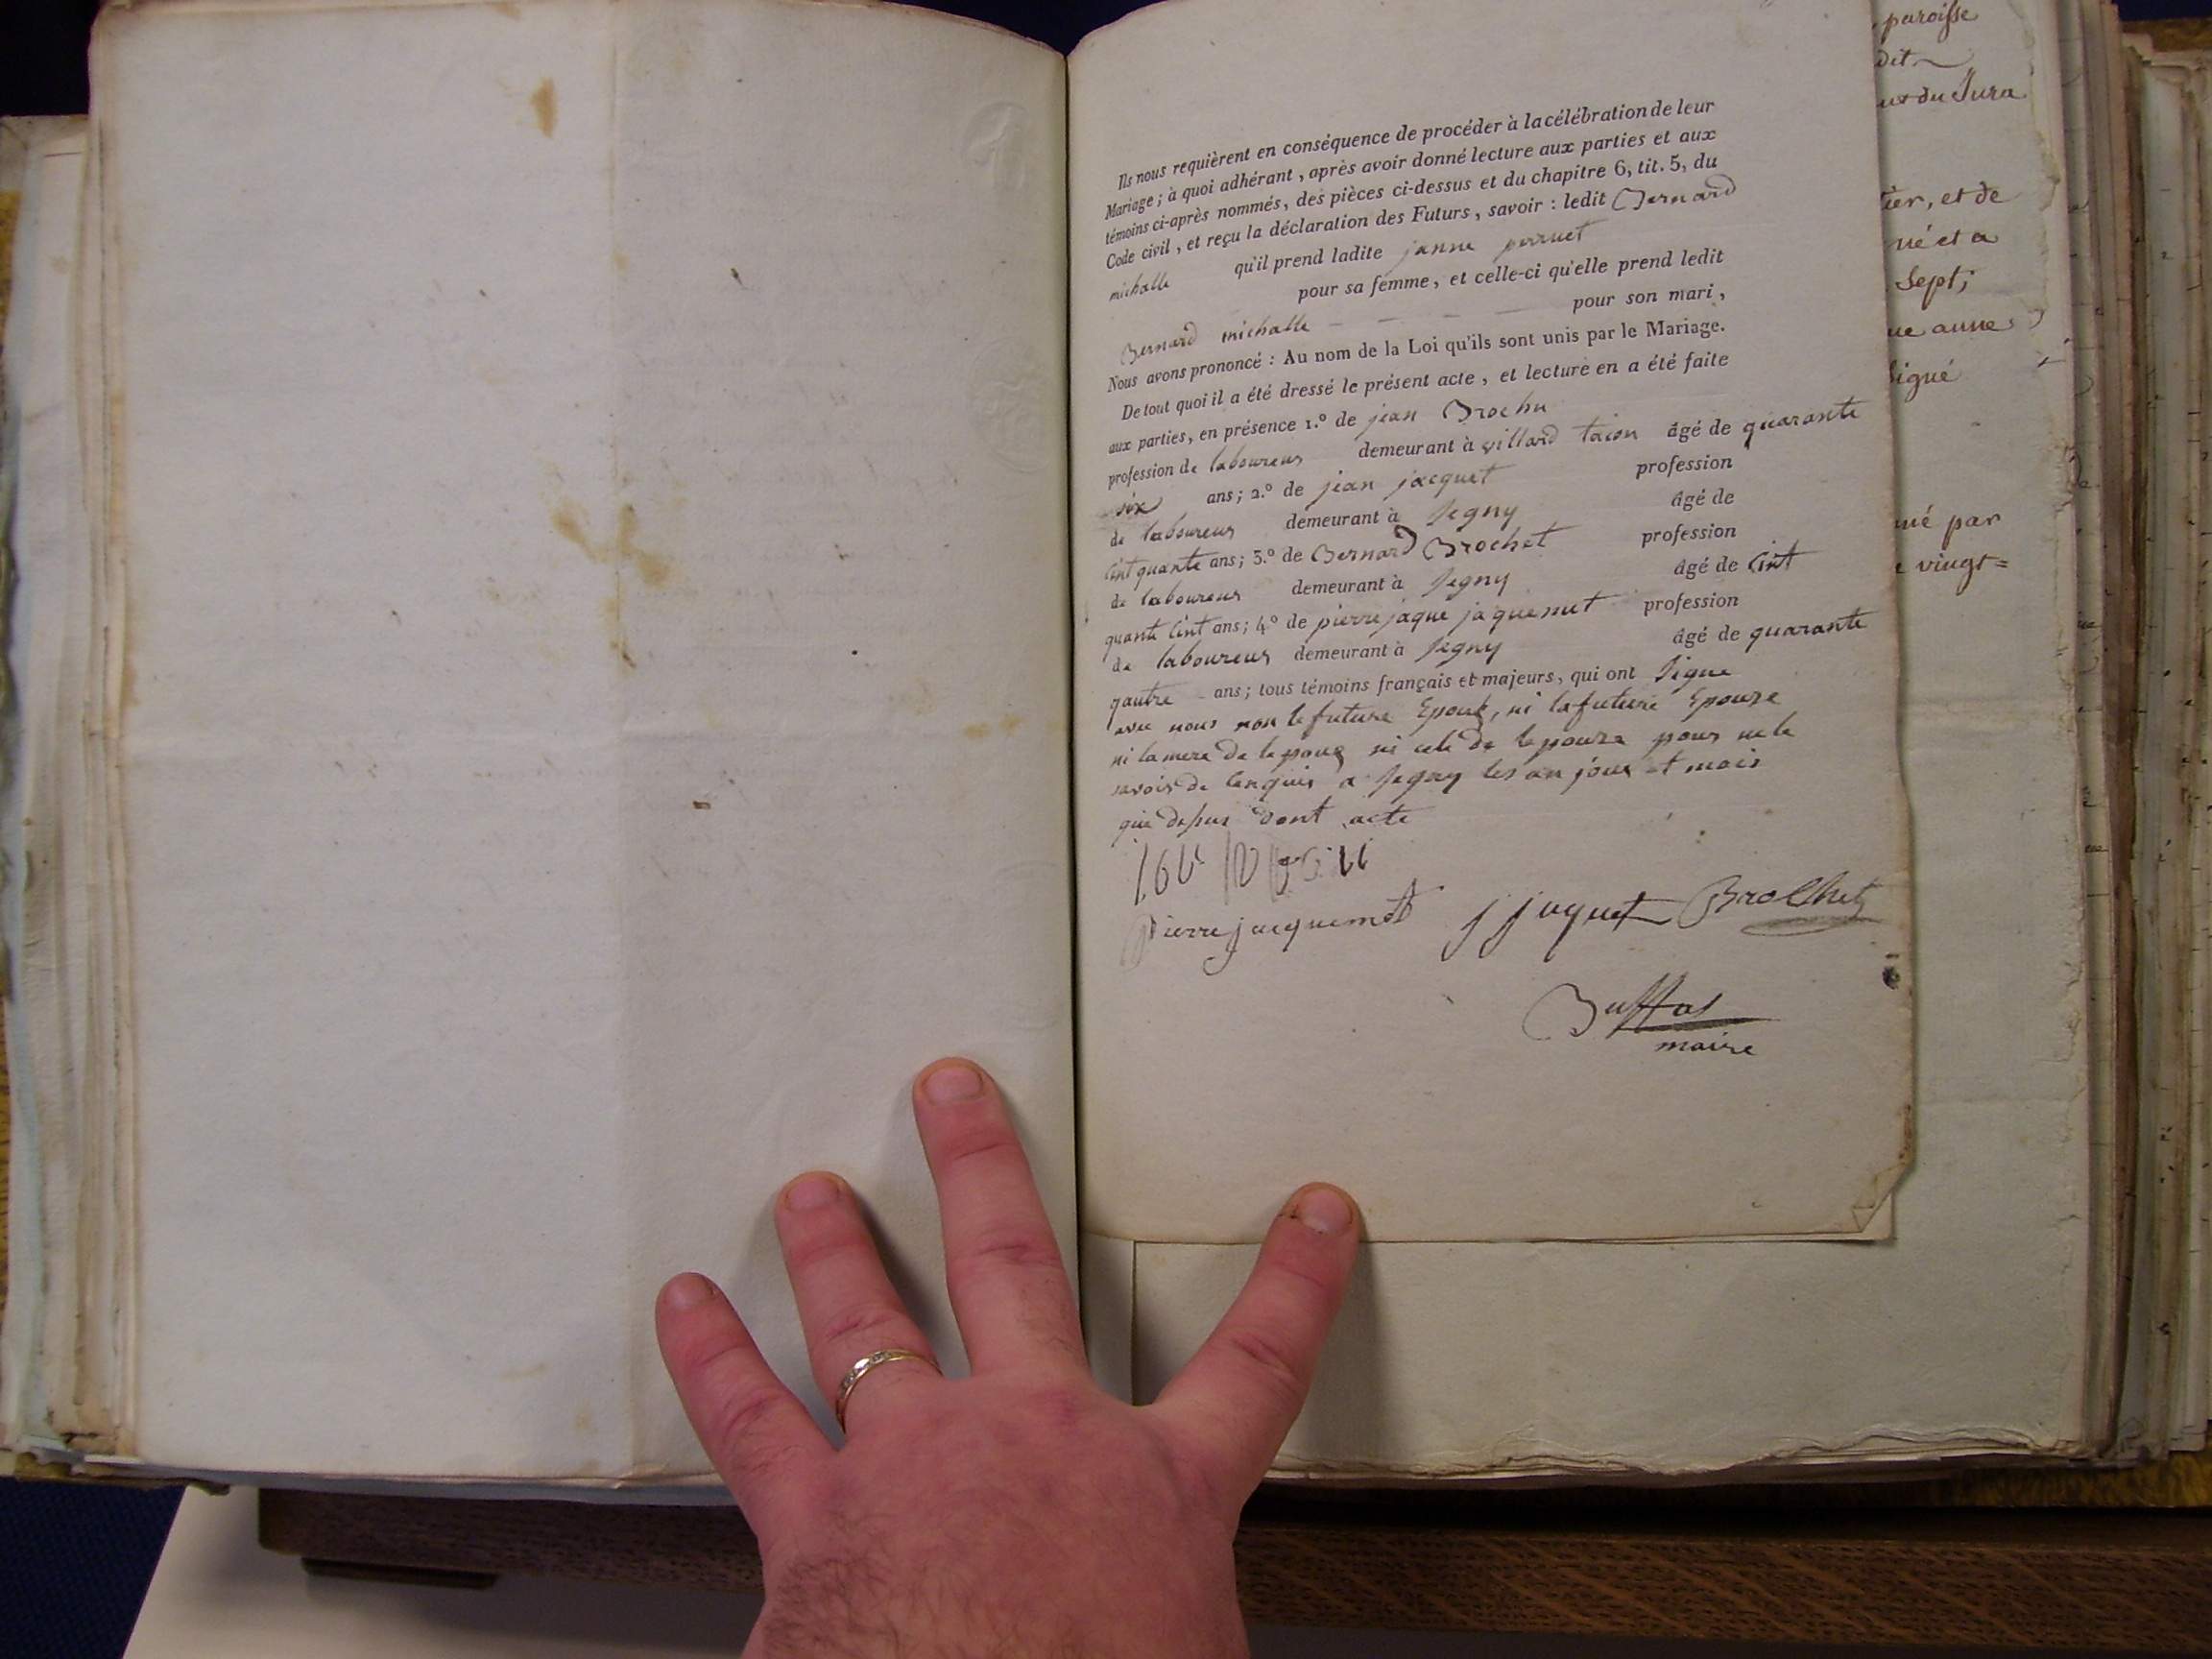 Ils nous requièrent en conséquence de procéder à la célébration de leur
Mariage ; à quoi adhérant, après avoir donné lecture aux parties et aux
témoins ci-après nommés, des pièces ci-dessus et du chapitre 6, tit. 5, du
Code civil, et reçu la déclaration des Futurs, savoir : ledit Bernard
michalle qu'il prend ladite janne perruet
pour sa femme, et celle-ci qu'elle prend ledit
Bernard michalle pour son mari,
Nous avons prononcé : Au nom de la Loi qu'ils sont unis par le Mariage.
De tout quoi il a été dressé le présent acte, et lecture en a été faite
aux parties, en présence 1.º de jean Brochu
profession de laboureur demeurant à villard tacon âgé de quarante
six ans ; 2.º de jean jacquet profession
de laboureur demeurant à Segny âgé de
cint quante ans ; 3.º de Bernard Brochet profession
de laboureur demeurant à Segny âgé de cint
quante cint ans ; 4.º de pierre jaque jaquemet profession
de laboureur demeurant à Segny âgé de quarante
qautre ans ; tous témoins français et majeurs, qui ont Signe
avec nous non le future Epoux, ni la future Epouze
ni la mere de lepoux ni cele de lepouze pour ne le
savoir de Enquis a Segny les an jour et mois
que desus dont acte
pierre jacquemet j jaquet Brochet
Buffas
maire
paroisse
dit
ut du Jura
ier, et de
né et a
Sept ;
ue anne
Signé
né par
e vingt=